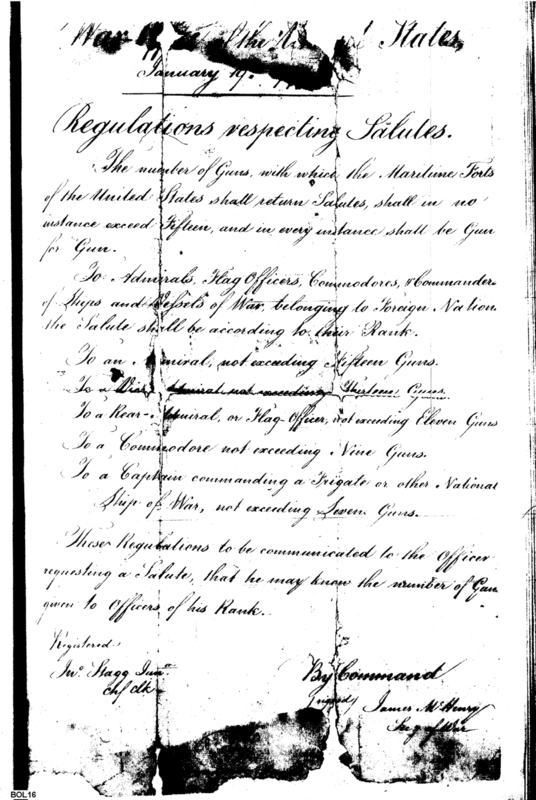 War of the States,
January 19.
Regulations respecting Salutes.
The number of Guns, with which the Maritime Forts
of the United States shall return Salutes, shall in no
instance exceed Fifteen, and in every instance shall be Gun
for Gun.
To Admirals, Flag Officers, Commodores, & Commander
of Ships and Vessels of War, belonging to Foreign Nation
the Salute shall be according to their Rank.
To an Admiral, not exceeding Fifteen Guns.
To a Vice Admiral not exceeding Thirteen Guns.
To a Rear-Admiral, or Flag-Officer, not exceeding Eleven Guns
To a Commodore not exceeding Nine Guns.
To a Captain commanding a Frigate or other National
Ship of War, not exceeding Seven Guns.
These Regulations to be communicated to the Officer
requesting a Salute, that he may know the number of Gun
given to Officers of his Rank.
Registered
Jno. Stagg Junr
chf clk
By Command
signed James McHenry
Secy of War
BOL16